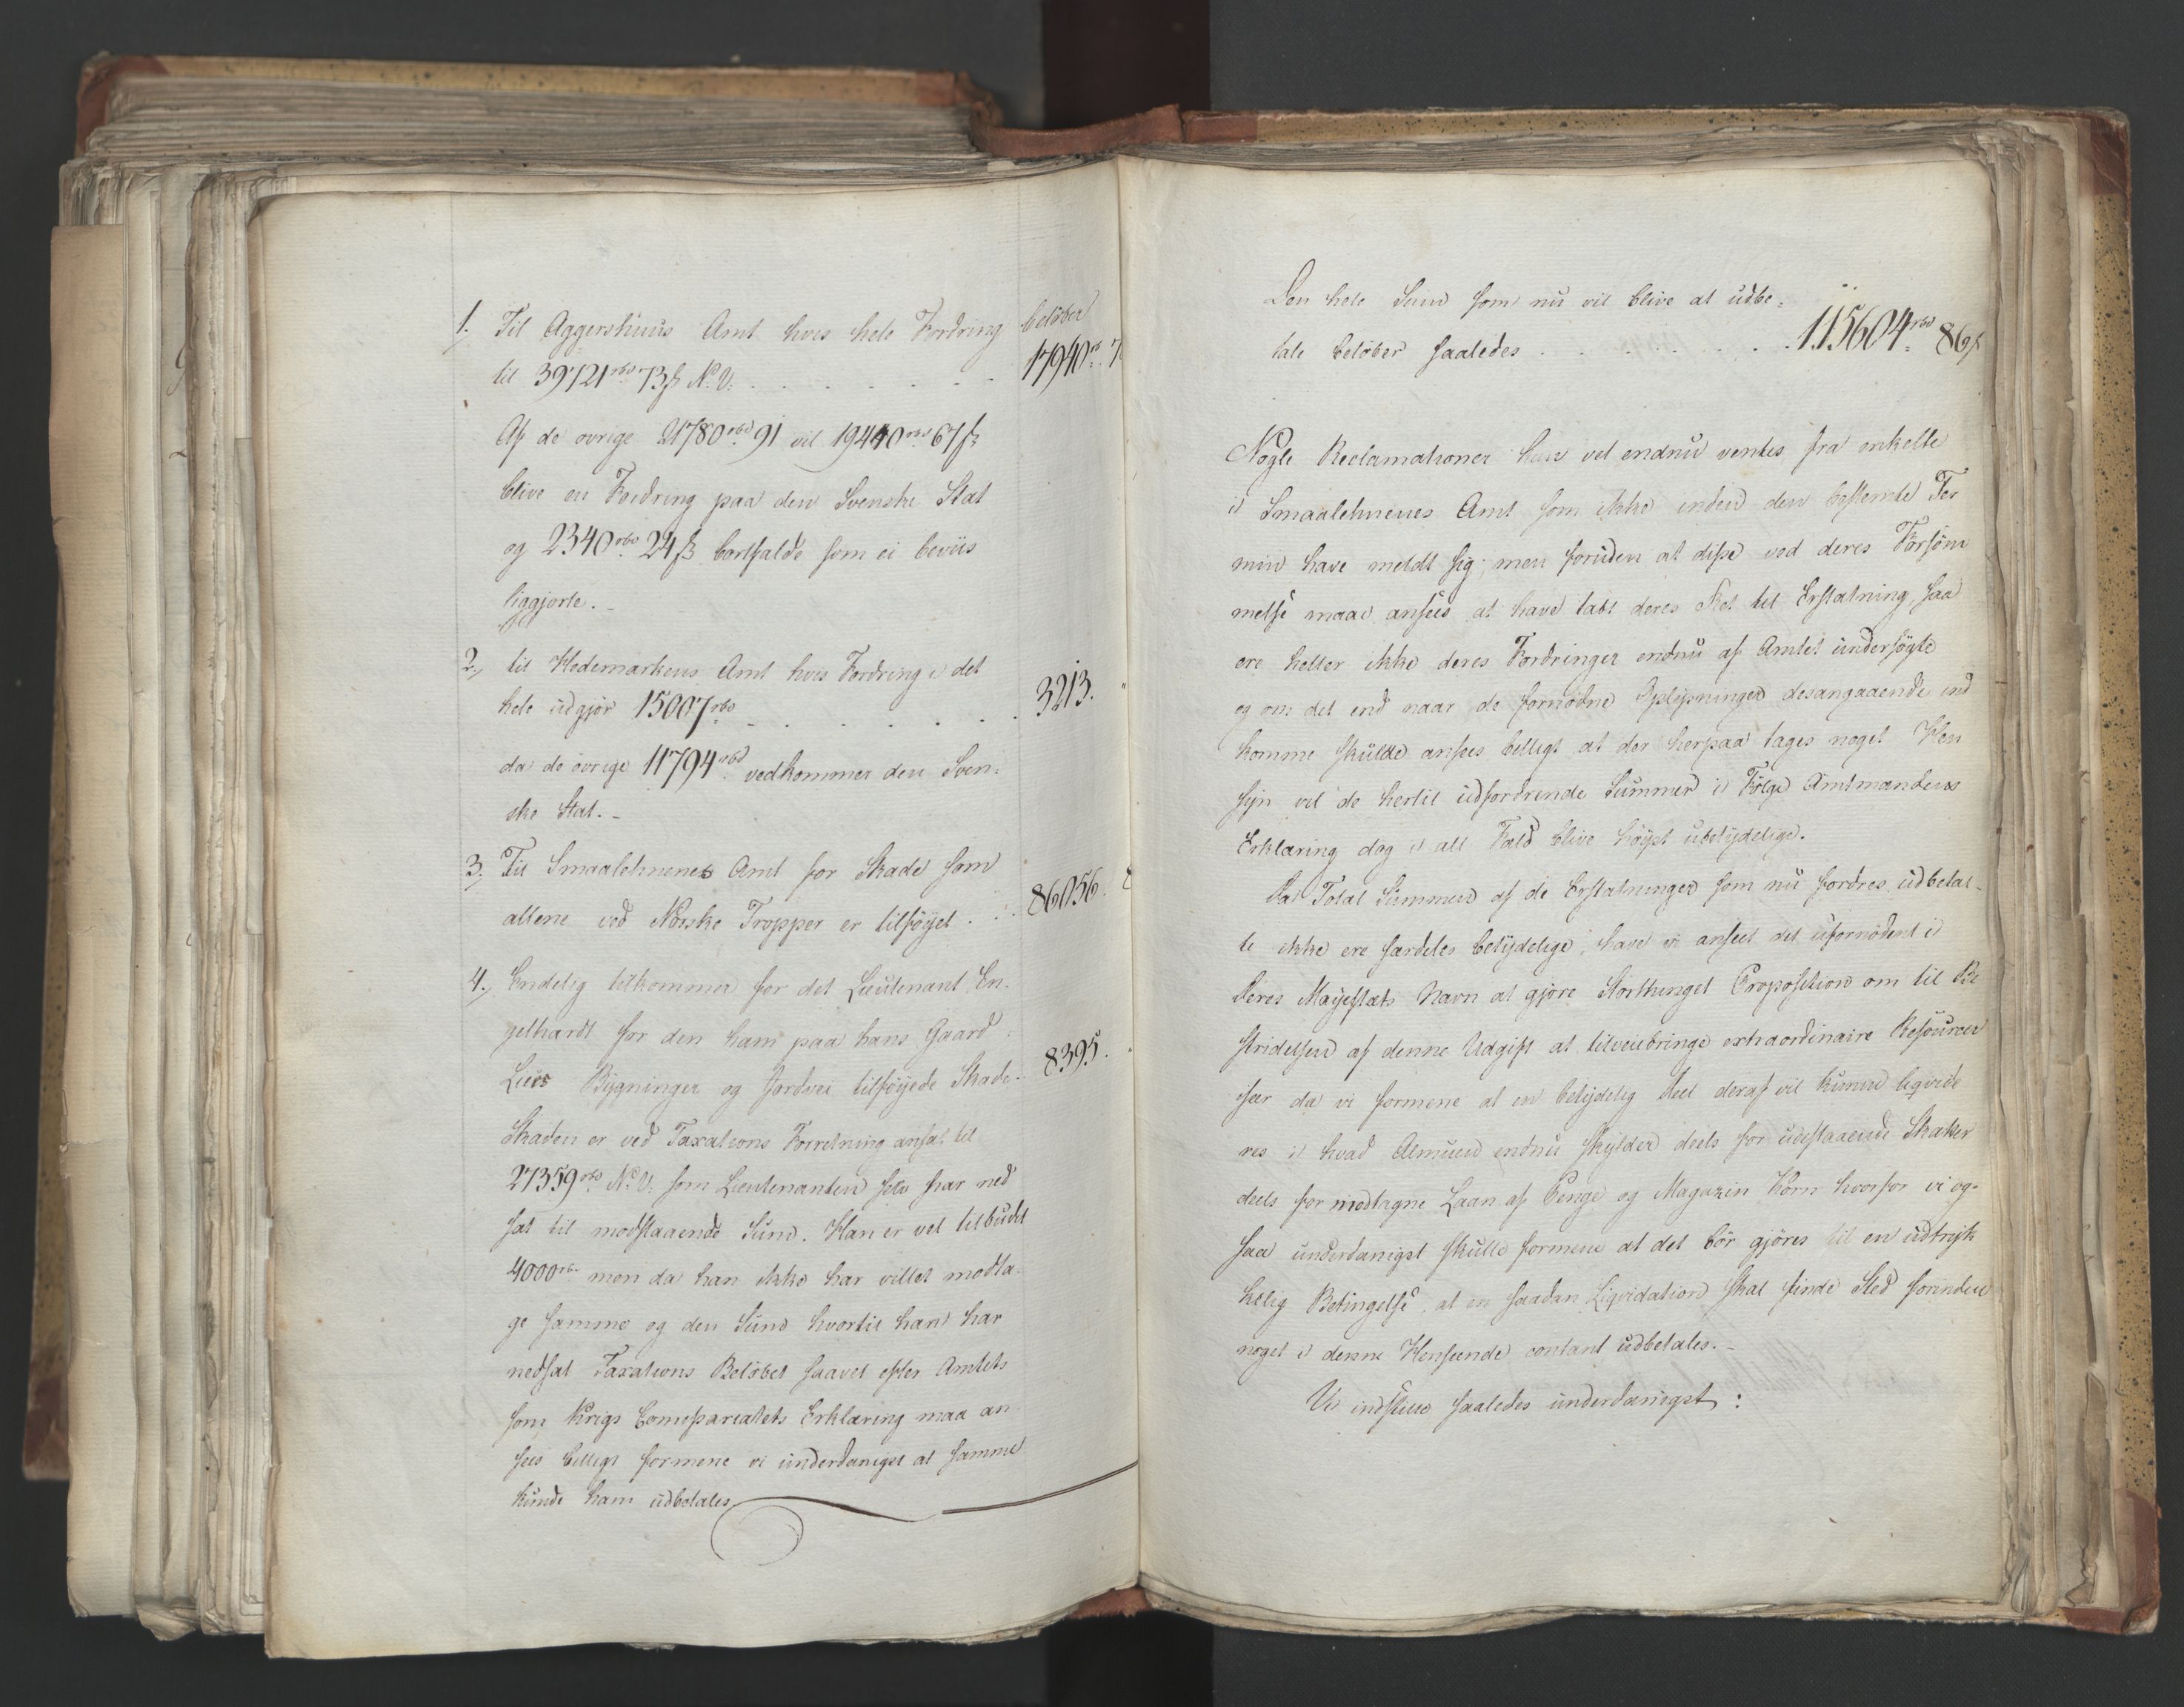 1. Til Aggershuus Amt hvis hele Fordring beløber
til 39721 rbd 73 ß N.V. . . . . . . . 17940 rb. 7
Af de øvrige 21780 rbd 91 vil 19440 rbd 67 ß
blive en Fordring paa den Svenske Stat
og 2340 rbd 24 ß bortfalde som ei beviis
liggjorte. -
2., til Hedemarkens Amt hvis Fordring i det
hele udgjør 15007 rbd . . . . . . . 3213.
da de øvrige 11794 rbd vedkommer den Sven-
ske Stat. -
3., Til Smaalehnenes Amt for Skade som
allene ved Norske Tropper er tilføyet . . . 86056.
4., Endelig tilkommer for det Lieutenant En-
gelhardt for den ham paa hans Gaard
Liers Bygninger og Jordvei tilføyede Skade. 8395.
Skaden er ved Taxations Forretning ansat til
27359 rbd N.V. som Lieutenanten selv har ned
sat til modstaaende Sum. Han er vel tilbudet
4000 rbd men da han ikke har villet modta-
ge samme og den Sum hvortil han har
nedsat Taxations Beløbet saavel efter Amtets
som Krigs Comissariatets Erklæring maa an
sees billigt formene vi underdanigst at samme
kunde ham udbetales
Den hele Sum som nu vil blive at udbe-
tale beløber saaledes . . . . . . . 115604 rbd 86 ß
Nogle Reclamationer kan vel endnu ventes fra enkelte
i Smaalehnenes Amt som ikke inden den bestemte Ter
min have meldt sig, men foruden at disse ved deres Forsøm
melse maae ansees at have tabt deres Ret til Erstatning, saa
ere heller ikke deres Fordringer endnu af Amtet undersøgte
og om det end naar de fornødne Oplysninger desangaaende ind
komme skulde ansees billigt at der herpaa tages noget Hen
syn vil de hertil udfordrende Summer i Følge Amtmandens
Erklæring dog i alt Fald blive høyst ubetydelige.
Da Total Summen af de Erstatninger som nu fordres udbetal-
te ikke ere særdeles betydelige, have vi anseet det ufornødent i
Deres Majestæts Navn at gjøre Storthinget Proposition om til Be
stridelsen af denne Udgift at tilveiebringe extraordinaire Resourcer
især da vi formene at en betydelig Deel deraf vil kunne liqvide
res i hvad Almuen endnu skylder deels for udestaaende Skatter
deels for modtagne Laan af Penge og Magazin Korn hvorfor vi og-
saa underdanigst skulle formene at det bør gjøres til en udtryk
kelig Betingelse, at en saadan Liqvidation skal finde Sted forinden
noget i denne Henseende contant udbetales. -
Vi indstille saaledes underdanigst: